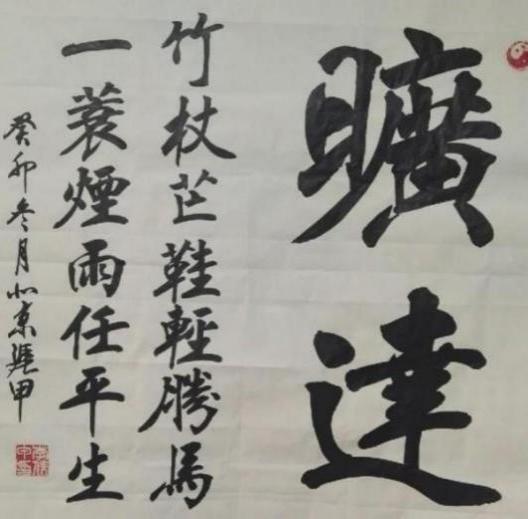 曠達
竹杖芒鞋輕勝馬
一蓑煙雨任平生
癸卯 月北京 甲